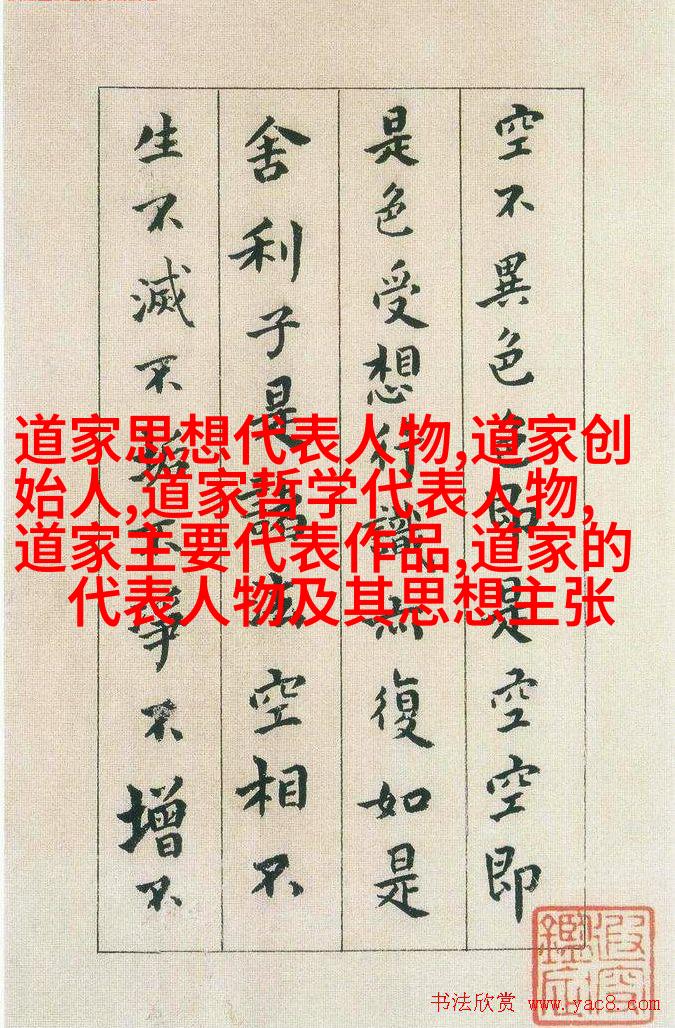 空不異色色即是空空即
是色受想行識亦復如是
舍利子是諸法空相不
生不滅不垢不淨不增不
道家思想代表人物,道家创
始人,道家哲学代表人物,
道家主要代表作品,道家的
代表人物及其思想主张
书法欣赏 www.yac8.com